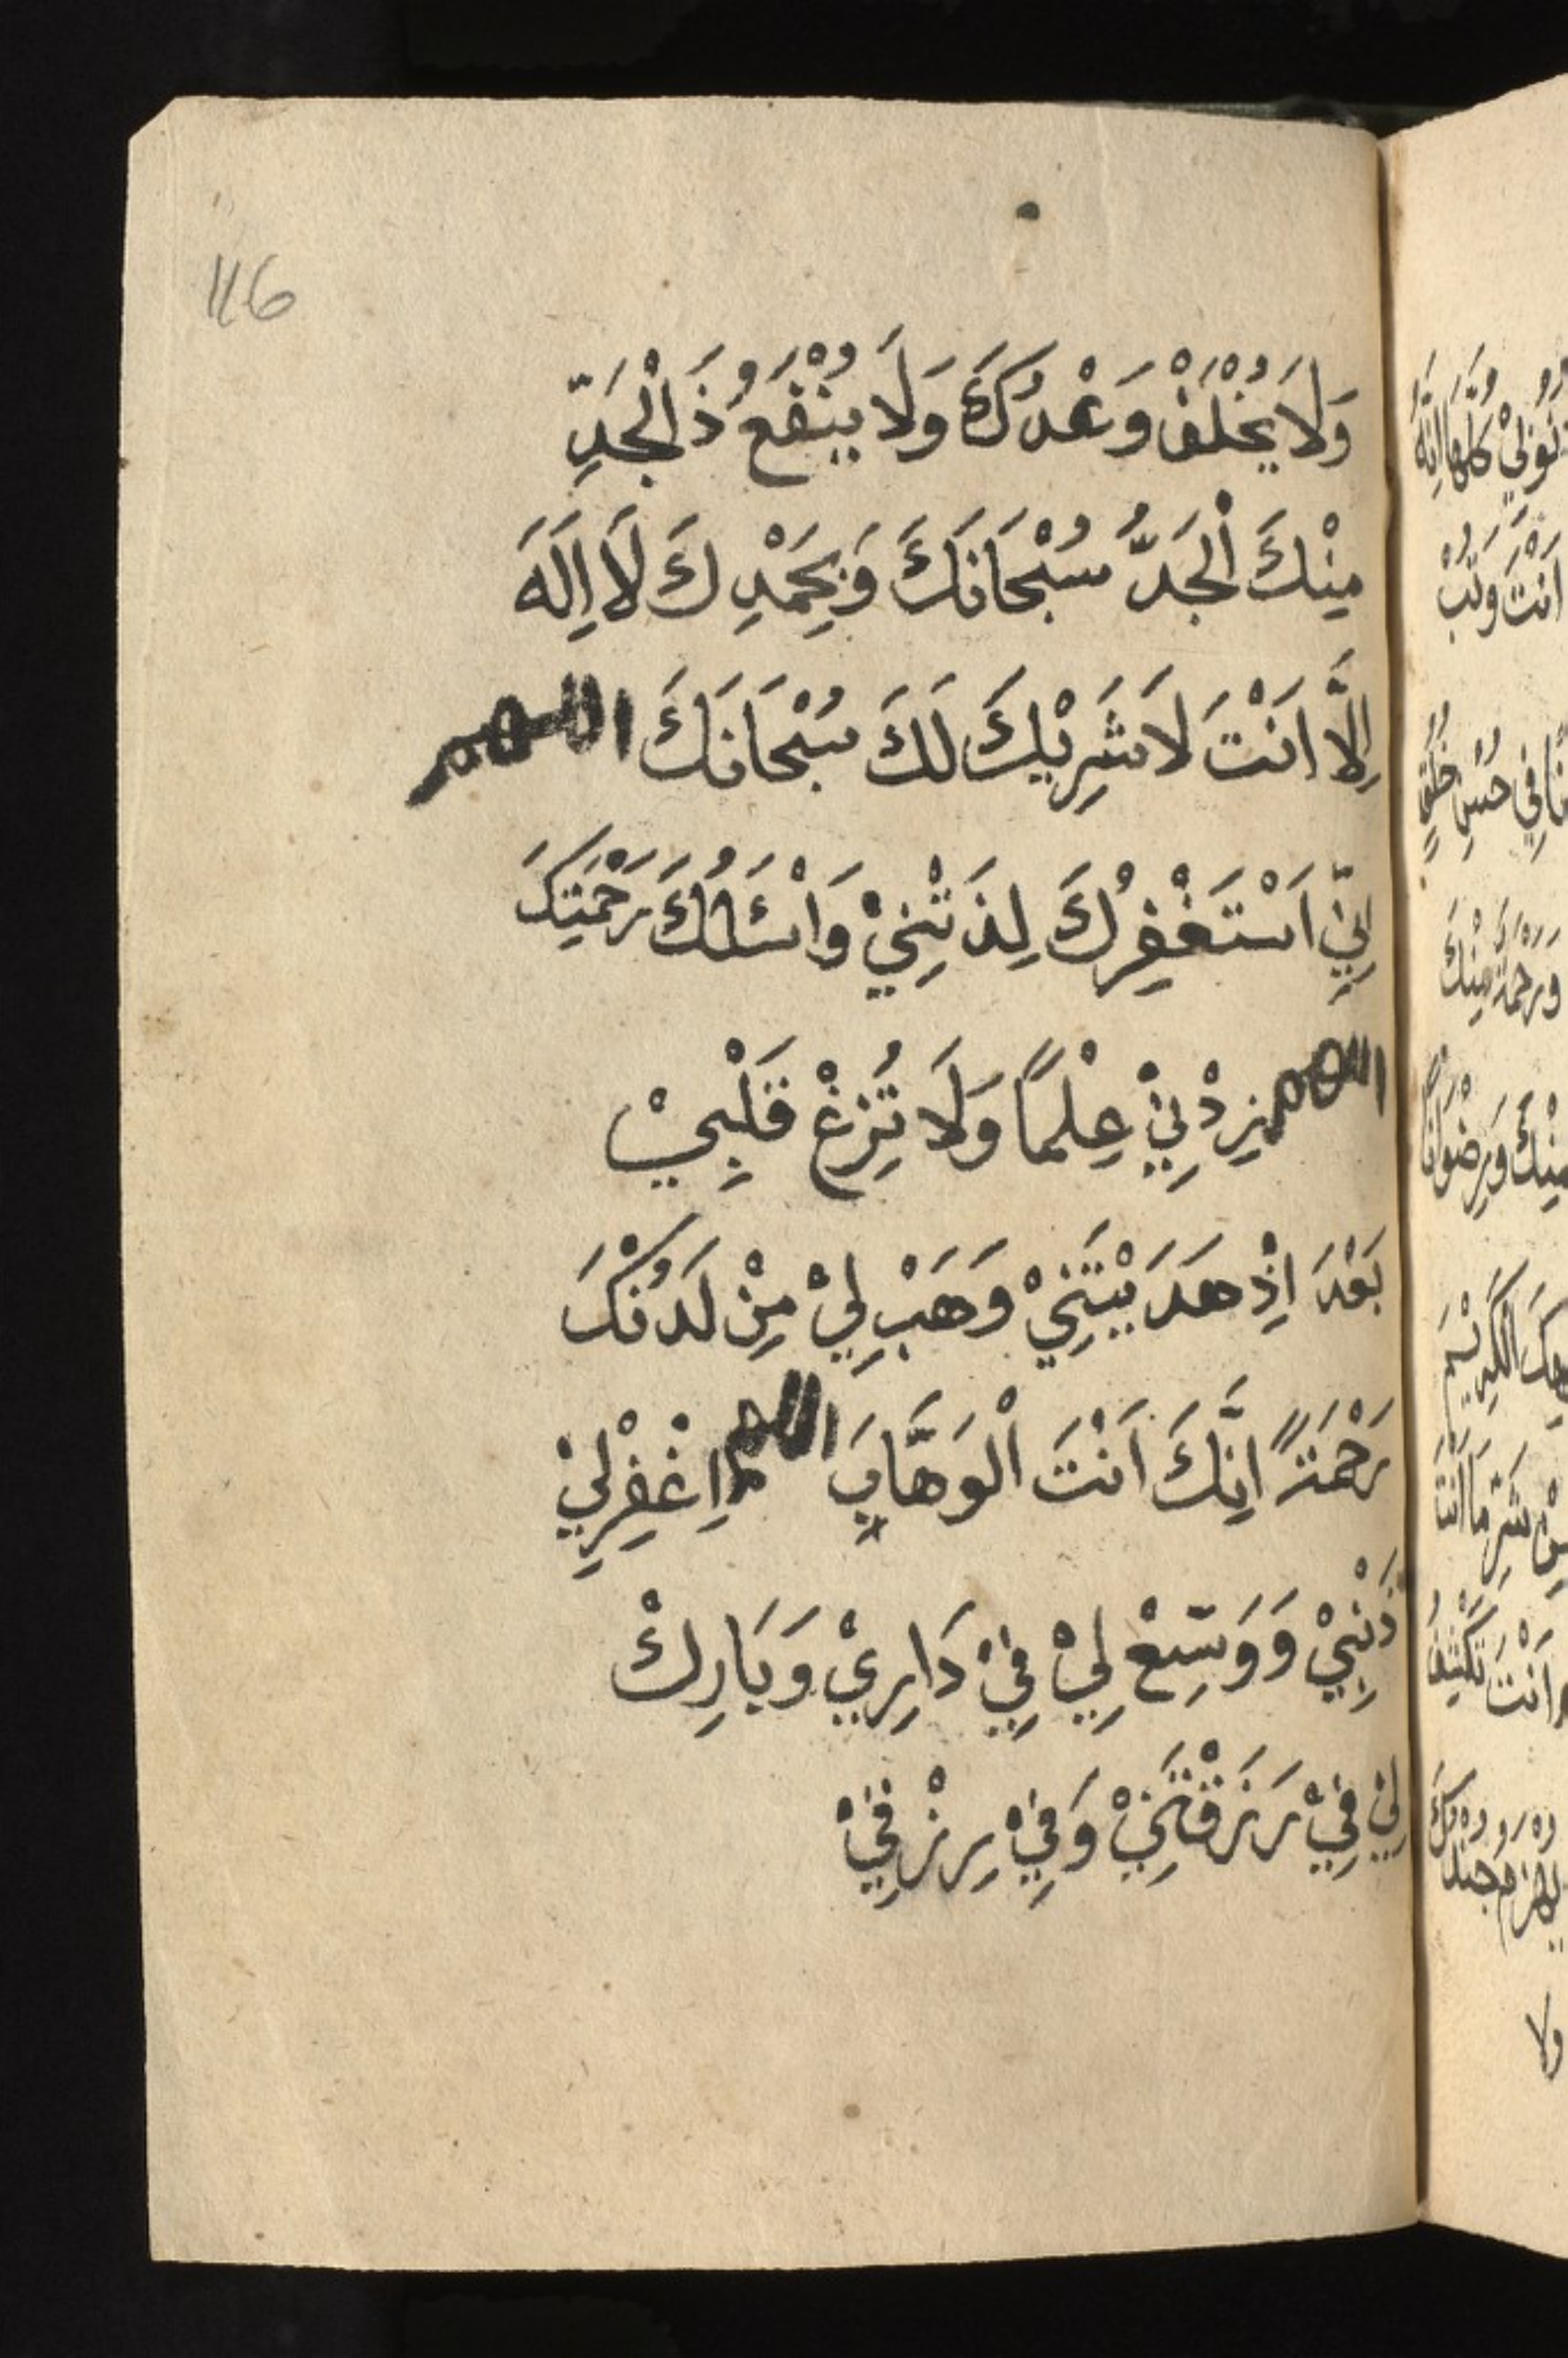 116
وَلَا يُخْلَفْ وَعْدُكَ وَلَا يُنْفَعُ ذَالْجَدِّ
مِنْكَ اْلجَدُّ سُبْحَانَكَ وَبِحَمْدِكَ لَا اِلَهَ
اِلَّا اَنْتَ لَا شَرِيْكَ لَكَ سُبْحَانَكَ اللهم
اِنِّيْ اَسْتَغْفِرُكَ لِذَنْبِيْ وَاَسْئَلُكَ رَحْمَتِكَ
اللهم زِدْنِيْ عِلْمًا وَلَا تُزِغْ قَلْبِيْ
بَعْدَ اِذْ هَدَيْتَنِيْ وَهَبْ لِيْ مِنْ لَدُنْكَ
رَحْمَةً اِنَّكَ اَنْتَ اْلوَهَّابِ اللهم اِغْفِرْلِيْ
ذَنْبِيْ وَوَسِّعْ لِيْ فِيْ دَارِيْ وَبَارِكْ
لِيْ فِيْ رَزَقْتَنِيْ وَفِيْ رِزْقِيْ
اَنْتَ وَتُبْ
وَرَحْمَةً مِنْكَ
مِنْكَ وَرِضْوَانًا
اَنْتَ تَكْشِفُ
ولا